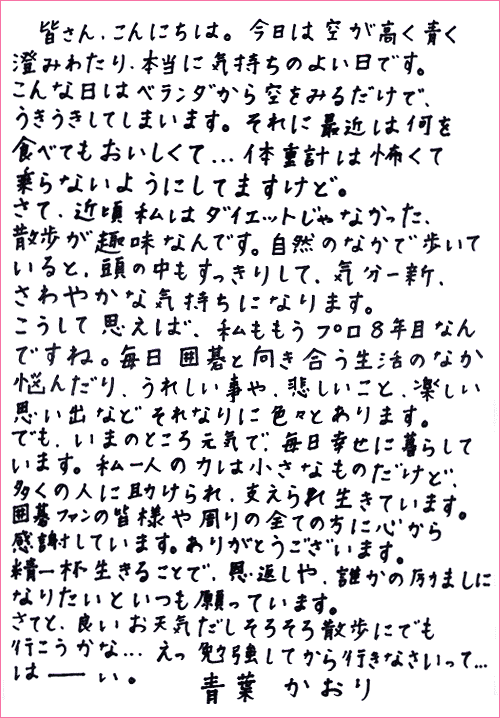 皆さん、こんにちは。今日は空が高く青く
澄みわたり、本当に気持ちのよい日です。
こんな日はベランダから空をみるだけで、
うきうきしてしまいます。それに最近は何を
食べてもおいしくて…体重計は怖くて
乗らないようにしてますけど。
さて、近頃私はダイエットじゃなかった、
散歩が趣味なんです。自然のなかで歩いて
いると、頭の中もすっきりして、気分一新、
さわやかな気持ちになります。
こうして思えば、私ももうプロ8年目なん
ですね。毎日囲碁と向き合う生活のなか
悩んだり、うれしい事や、悲しいこと、楽しい
思い出などそれなりに色々とあります。
でも、いまのところ元気で、毎日幸せに暮らして
います。私一人の力は小さなものだけど、
多くの人に助けられ、支えられ生きています。
囲碁ファンの皆様や周りの全ての方に心から
感謝しています。ありがとうございます。
精一杯生きることで、恩返しや、誰かの励ましに
なりたいといつも願っています。
さてと、良いお天気だしそろそろ散歩にでも
行こうかな…えっ勉強してから行きなさいって…
は――い。
青葉かおり